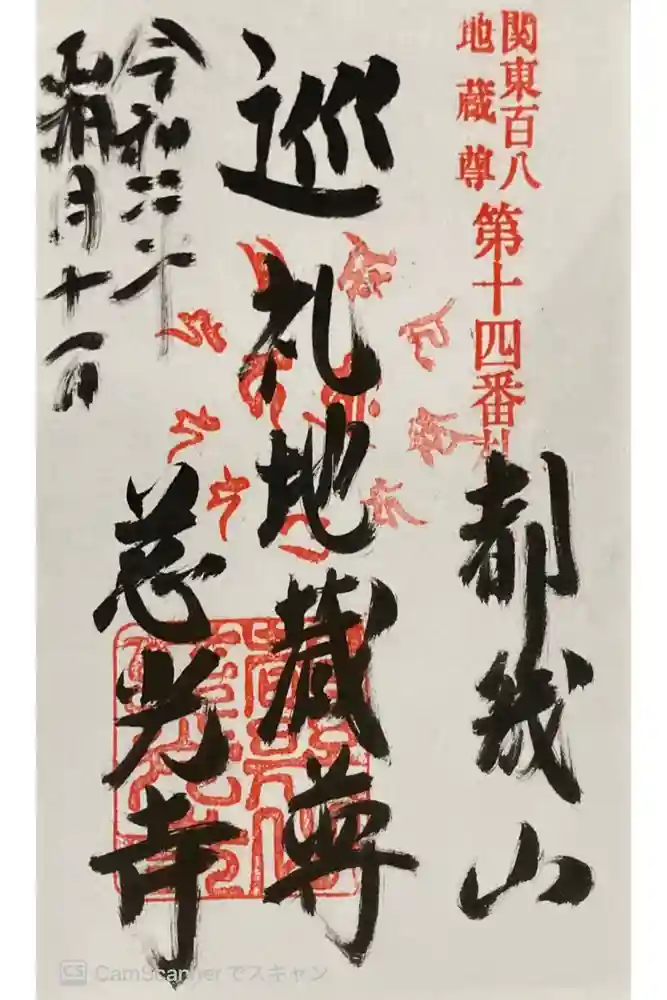 関東百八
地蔵尊
第十四番札
都幾山
巡礼地蔵尊
慈光寺
令和
月十一日
CS CamScannerでスキャン